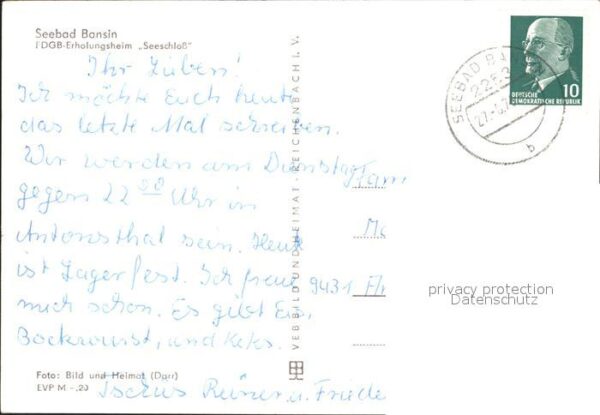 Seebad Bansin
FDGB-Erholungsheim „Seeschloß"
Ihr Lieben!
Ich möchte Euch heute
das letzte Mal schreiben.
Wir werden am Dienstag
gegen 22 00 Uhr in
Antonsthal sein. Heute
ist Lagerfest. Ich freue
mich schon. Es gibt Eis,
Bockwurst, und Keks.
Tschüs Reiner u. Friede
Foto: Bild und Heimat (Darr)
EVP M -,20
VEB BILD UND HEIMAT · REICHENBACH I. V.
SEEBAD BA
225
27.
b
10
DEUTSCHE
DEMOKRATISCHE REPUBLIK
Fam
9431
privacy protection
Datenschutz